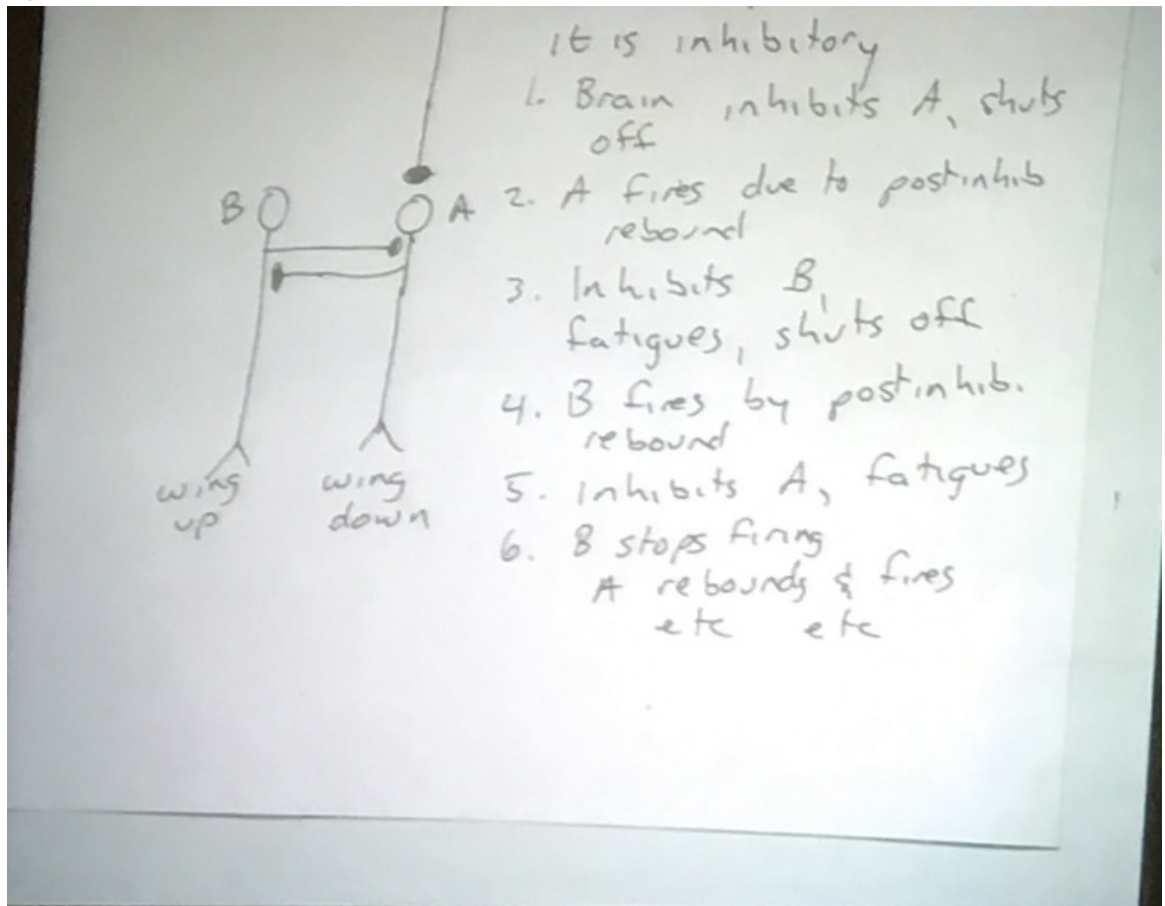 it is inhibitory
1. Brain inhibits A, shuts
off
B
A
2. A fires due to postinhib
rebound
3. Inhibits B,
fatigues, shuts off
4. B fires by postinhib.
rebound
wing
up
wing
down
5. inhibits A, fatigues
6. B stops firing
A rebounds & fires
etc etc